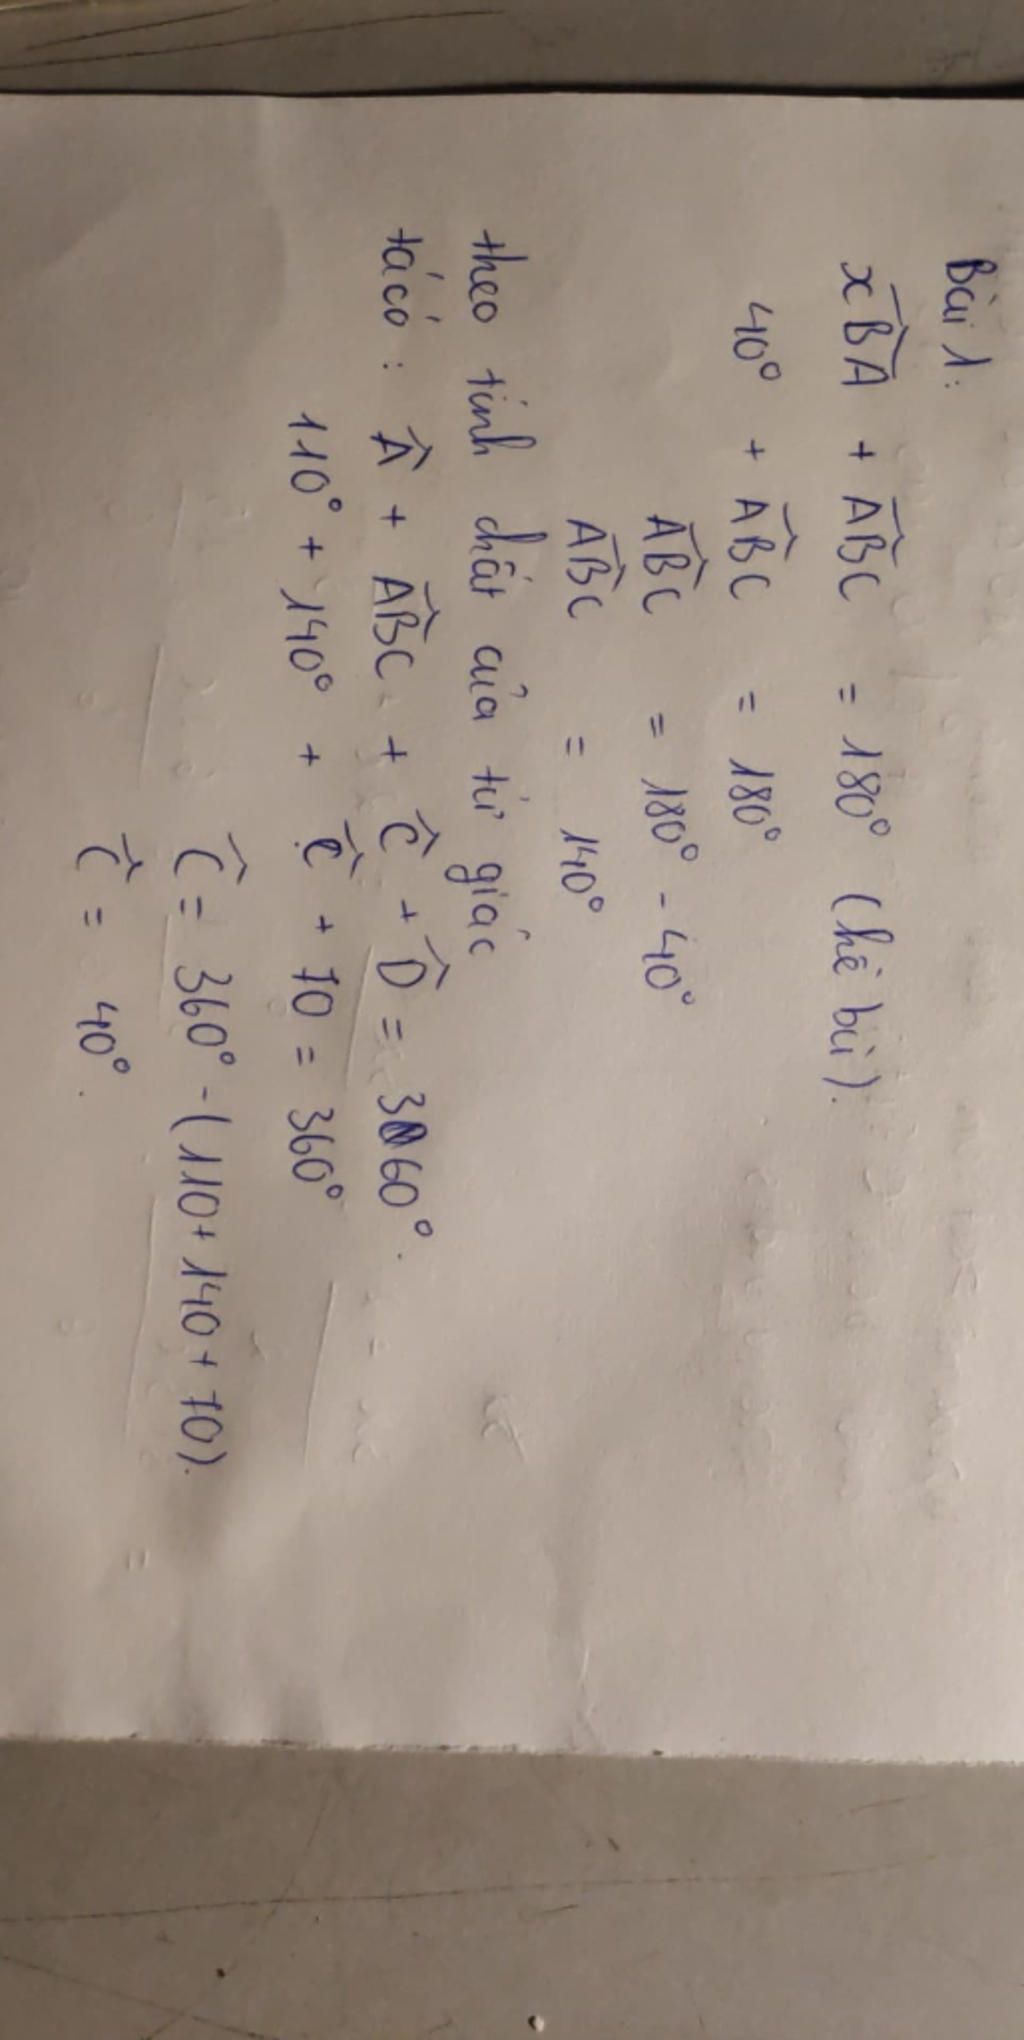 Bài 1:
xB̂A + AB̂C = 180° (kề bù).
40° + AB̂C = 180°
AB̂C = 180° - 40°
AB̂C = 140°
theo tính chất của tứ giác
tacó: Â + AB̂C + Ĉ + D̂ = 360°.
110° + 140° + Ĉ + 70 = 360°
Ĉ = 360° - (110 + 140 + 70).
Ĉ = 40°.